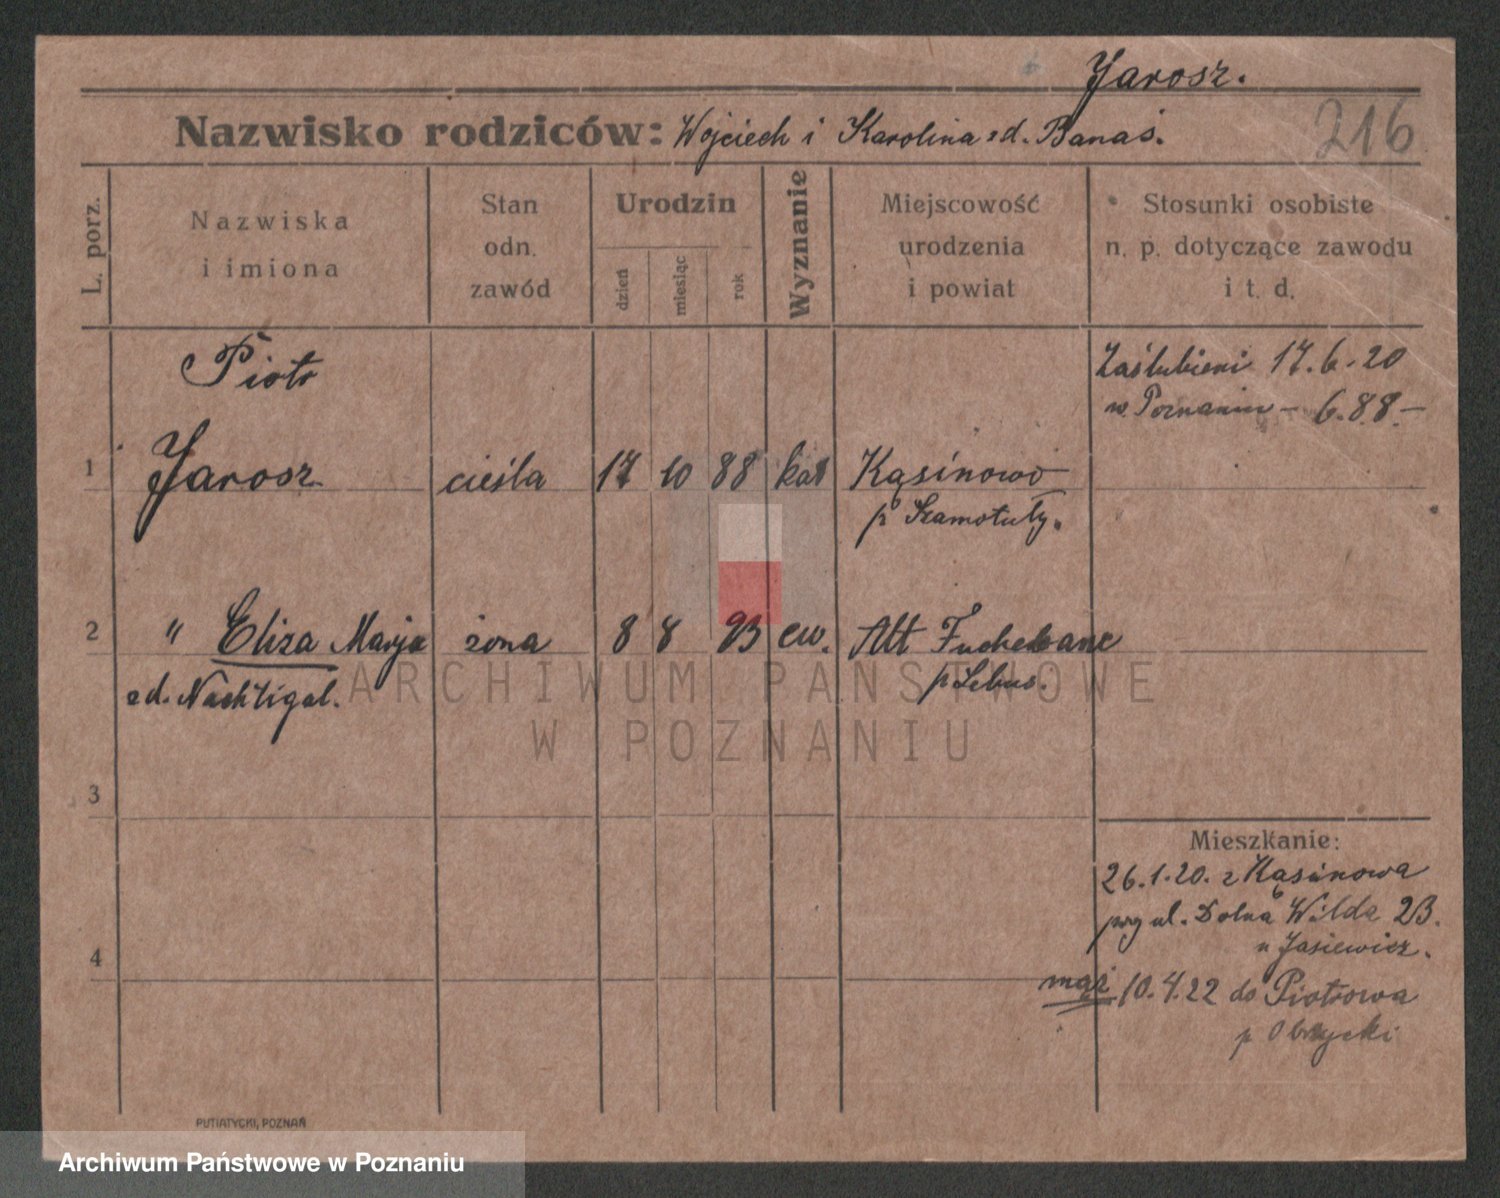 Jarosz.
Nazwisko rodziców: Wojciech i Karolina zd. Banaś.
216
L. porz.
Nazwiska
i imiona
Stan
odn.
zawód
Urodzin
dzień
miesiąc
rok
Wyznanie
Miejscowość
urodzenia
i powiat
Stosunki osobiste
n. p. dotyczące zawodu
i t. d.
Zaślubieni 17.6.20
w Poznaniu – 6.88.–
Piotr
1 Jarosz cieśla 17 10 88 kat Kąsinowo
p Szamotuły.
2 " Eliza Marja żona 8 8 93 ew. Alt
zd. Nachtigal. p Lebus.
3
4
Mieszkanie:
26.1.20. z Kąsinowa
ul. Dolna Wilda 23.
u Jasiewicz.
mąż 10.4.22 do Piotrowa
p Obrzycki
PUTIATYCKI, POZNAŃ
ARCHIWUM PAŃSTWOWE
W POZNANIU
Archiwum Państwowe w Poznaniu